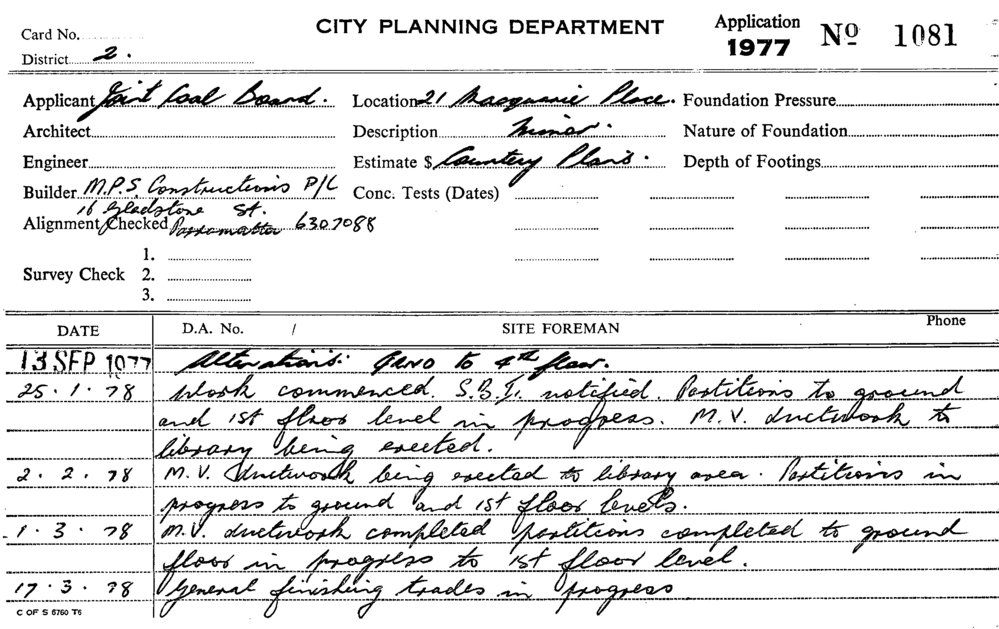 CITY PLANNING DEPARTMENT
Application
1977 Nº 1081
Card No.
District 2.
Applicant Joint Coal Board. Location 21 Macquarie Place. Foundation Pressure
Architect Description Minor. Nature of Foundation
Engineer Estimate $ Country Plans. Depth of Footings
Builder M.P.S. Constructions P/L Conc. Tests (Dates)
16 Gladstone St.
Alignment Checked Parramatta 6307088
1.
Survey Check 2.
3.
DATE D.A. No. / SITE FOREMAN Phone
13 SEP 1977 Alterations. GRND to 4th floor.
25.1.78 Work commenced. S.B.I. notified. Partitions to ground
and 1st floor level in progress. M.V. ductwork to
library being erected.
2.2.78 M.V. ductwork being erected to library area. Partitions in
progress to ground and 1st floor levels.
1.3.78 M.V. ductwork completed partitions completed to ground
floor in progress to 1st floor level.
17.3.78 General finishing trades in progress
C OF S 6760 T6